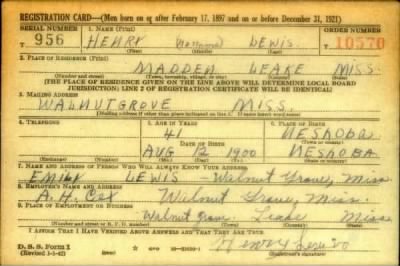 REGISTRATION CARD—(Men born on or after February 17, 1897 and on or before December 31, 1921)
SERIAL NUMBER 1. NAME (Print) ORDER NUMBER
T 956 HENRY (No name) LEWIS T 10570
(First) (Middle) (Last)
2. PLACE OF RESIDENCE (Print)
MADDEN LEAKE MISS.
(Number and street) (Town, township, village, or city) (County) (State)
[THE PLACE OF RESIDENCE GIVEN ON THE LINE ABOVE WILL DETERMINE LOCAL BOARD
JURISDICTION; LINE 2 OF REGISTRATION CERTIFICATE WILL BE IDENTICAL]
3. MAILING ADDRESS
WALNUTGROVE MISS.
[Mailing address if other than place indicated on line 2. If same insert word same]
4. TELEPHONE 5. AGE IN YEARS 6. PLACE OF BIRTH
41 NESHOBA
DATE OF BIRTH (Town or county)
AUG 12 1900 NESHOBA
(Exchange) (Number) (Mo.) (Day) (Yr.) (State or country)
7. NAME AND ADDRESS OF PERSON WHO WILL ALWAYS KNOW YOUR ADDRESS
EMILY LEWIS - Walnut Grove, Miss
8. EMPLOYER'S NAME AND ADDRESS
A. H. Walnut Grove, Miss.
9. PLACE OF EMPLOYMENT OR BUSINESS
Walnut grove Leake Miss
(Number and street or R. F. D. number) (Town) (County) (State)
I AFFIRM THAT I HAVE VERIFIED ABOVE ANSWERS AND THAT THEY ARE TRUE.
D. S. S. Form 1
(Revised 1-1-42) (over) Henry Lewis
(Registrant's signature)